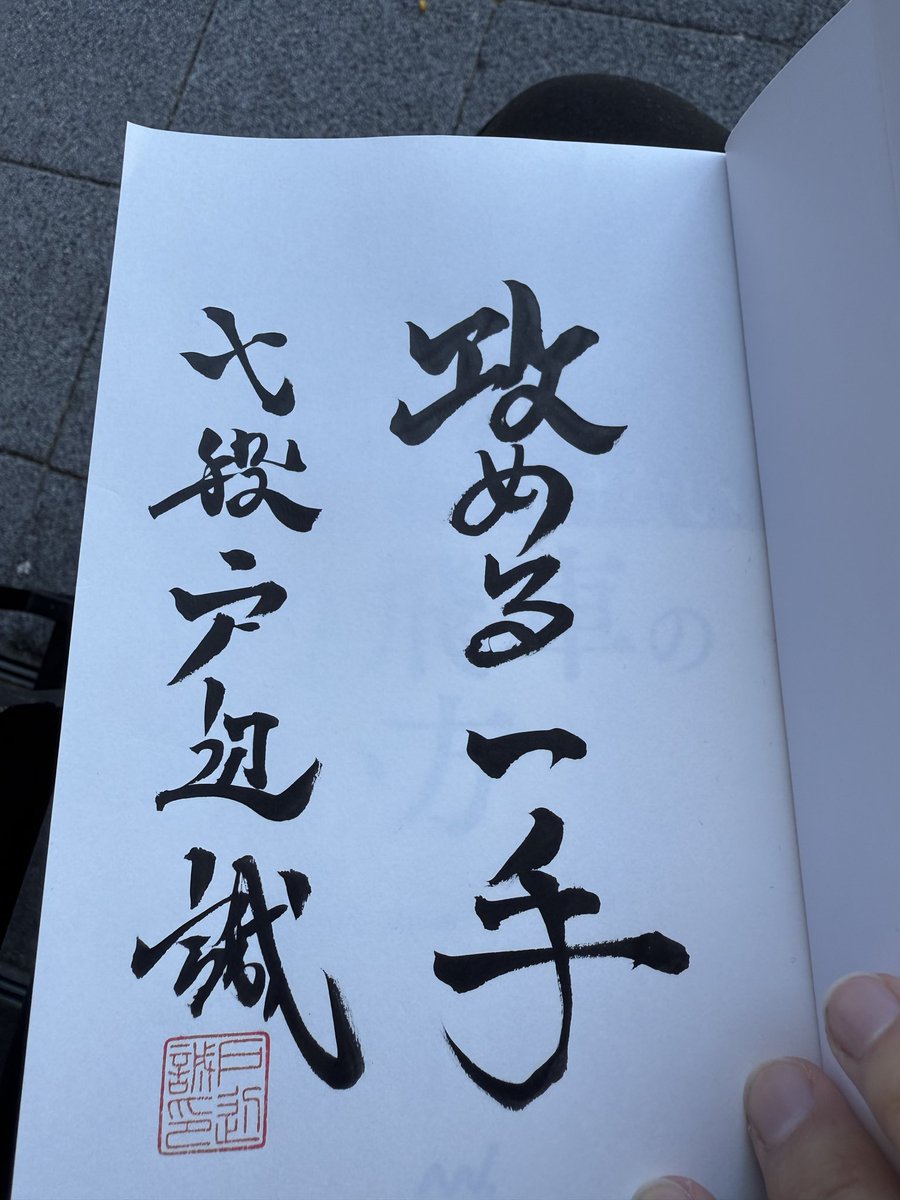 攻める一手
七段戸辺誠
戸辺
誠印